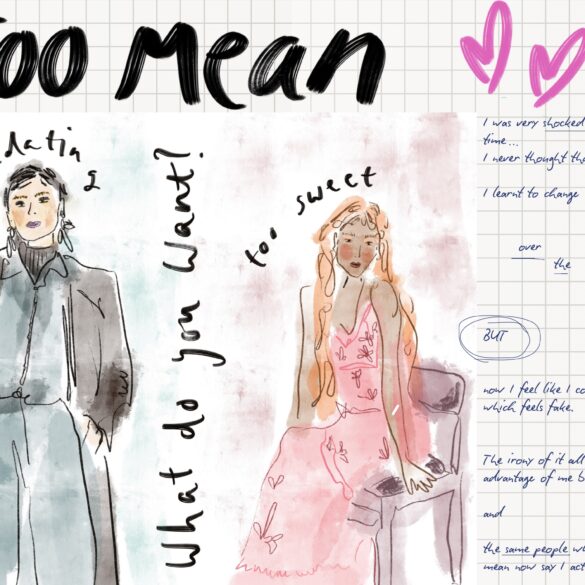 Too Mean
What do you Want?
too sweet
I was very shocked
time...
I never thought
I learnt to change
over
the
BUT
now I feel like I
which feels fake.
The irony of it all
advantage of me
and
the same people
mean now say I